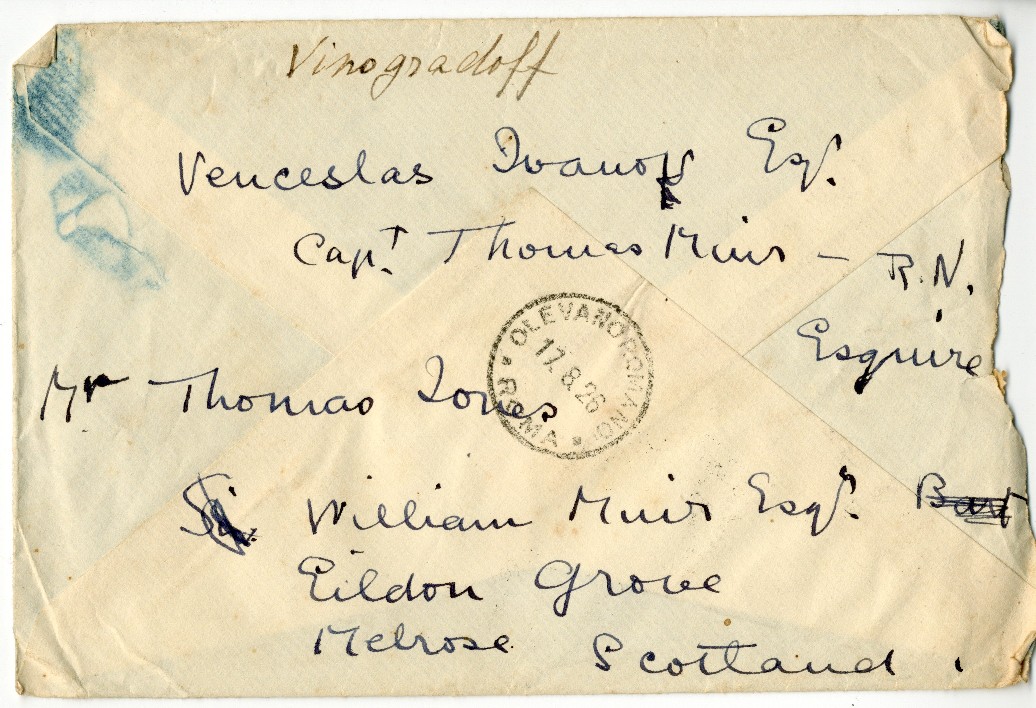 Vinogradoff
Venceslas Ivanoff Esqr.
Capt. Thomas Muir – R.N.
Esquire
OLEVANO ROMANO * ROMA *
17.8.26
Mr Thomas Jones
Sir William Muir Esqr. Bart
Eildon Grove
Melrose Scotland.